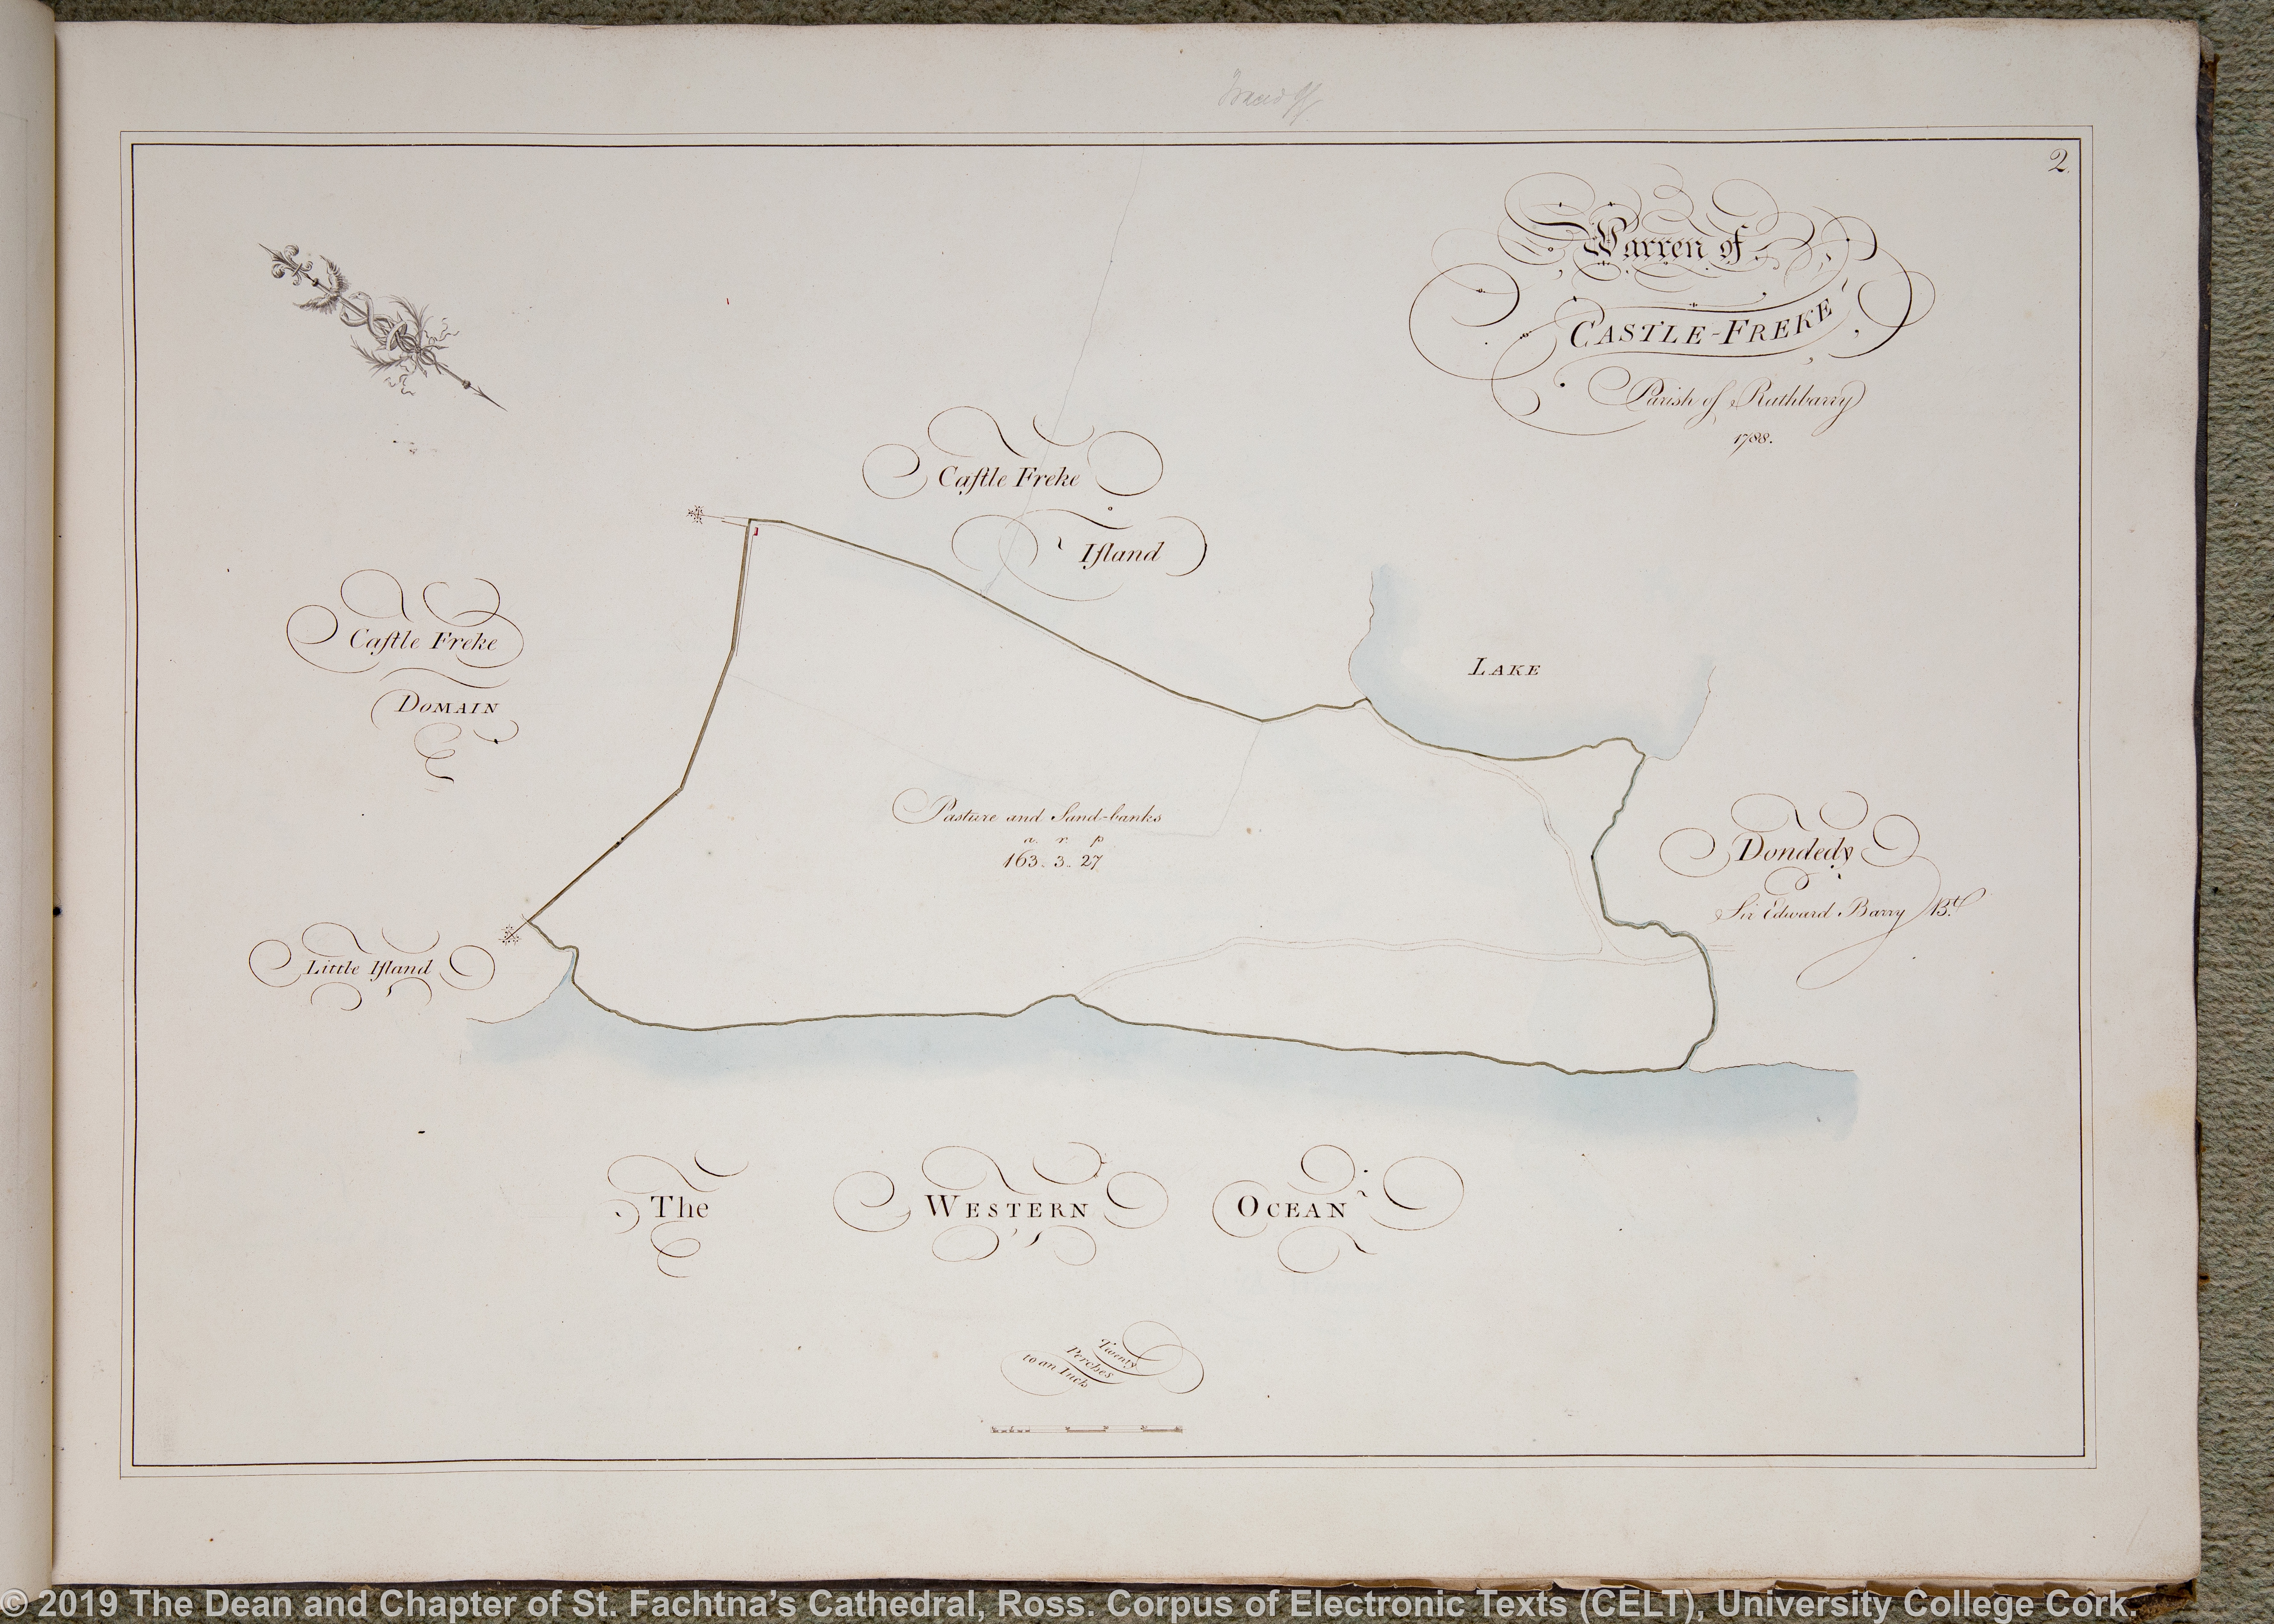 2.
Warren of
CASTLE-FREKE
Parish of Rathbarry
1788.
Caſtle Freke
Iſland
Caſtle Freke
DOMAIN
LAKE
Pasture and Sand-banks
a. r. p
163. 3. 27
Dondedy
Sir Edward Barry Bt.
Little Iſland
The WESTERN OCEAN
Twenty
Perches
to an Inch
© 2019 The Dean and Chapter of St. Fachtna’s Cathedral, Ross. Corpus of Electronic Texts (CELT), University College Cork.